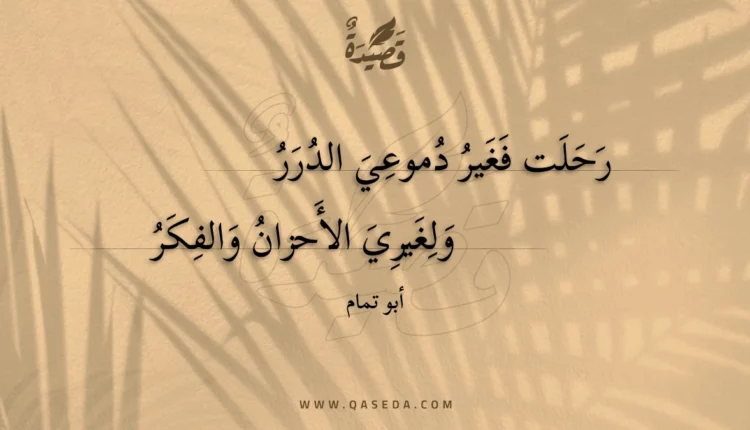 قَصِيْدَةٌ
رَحَلَت فَغَيرُ دُموعِيَ الدُرَرُ
وَلِغَيرِيَ الأَحزانُ وَالفِكَرُ
أبو تمام
WWW.QASEDA.COM